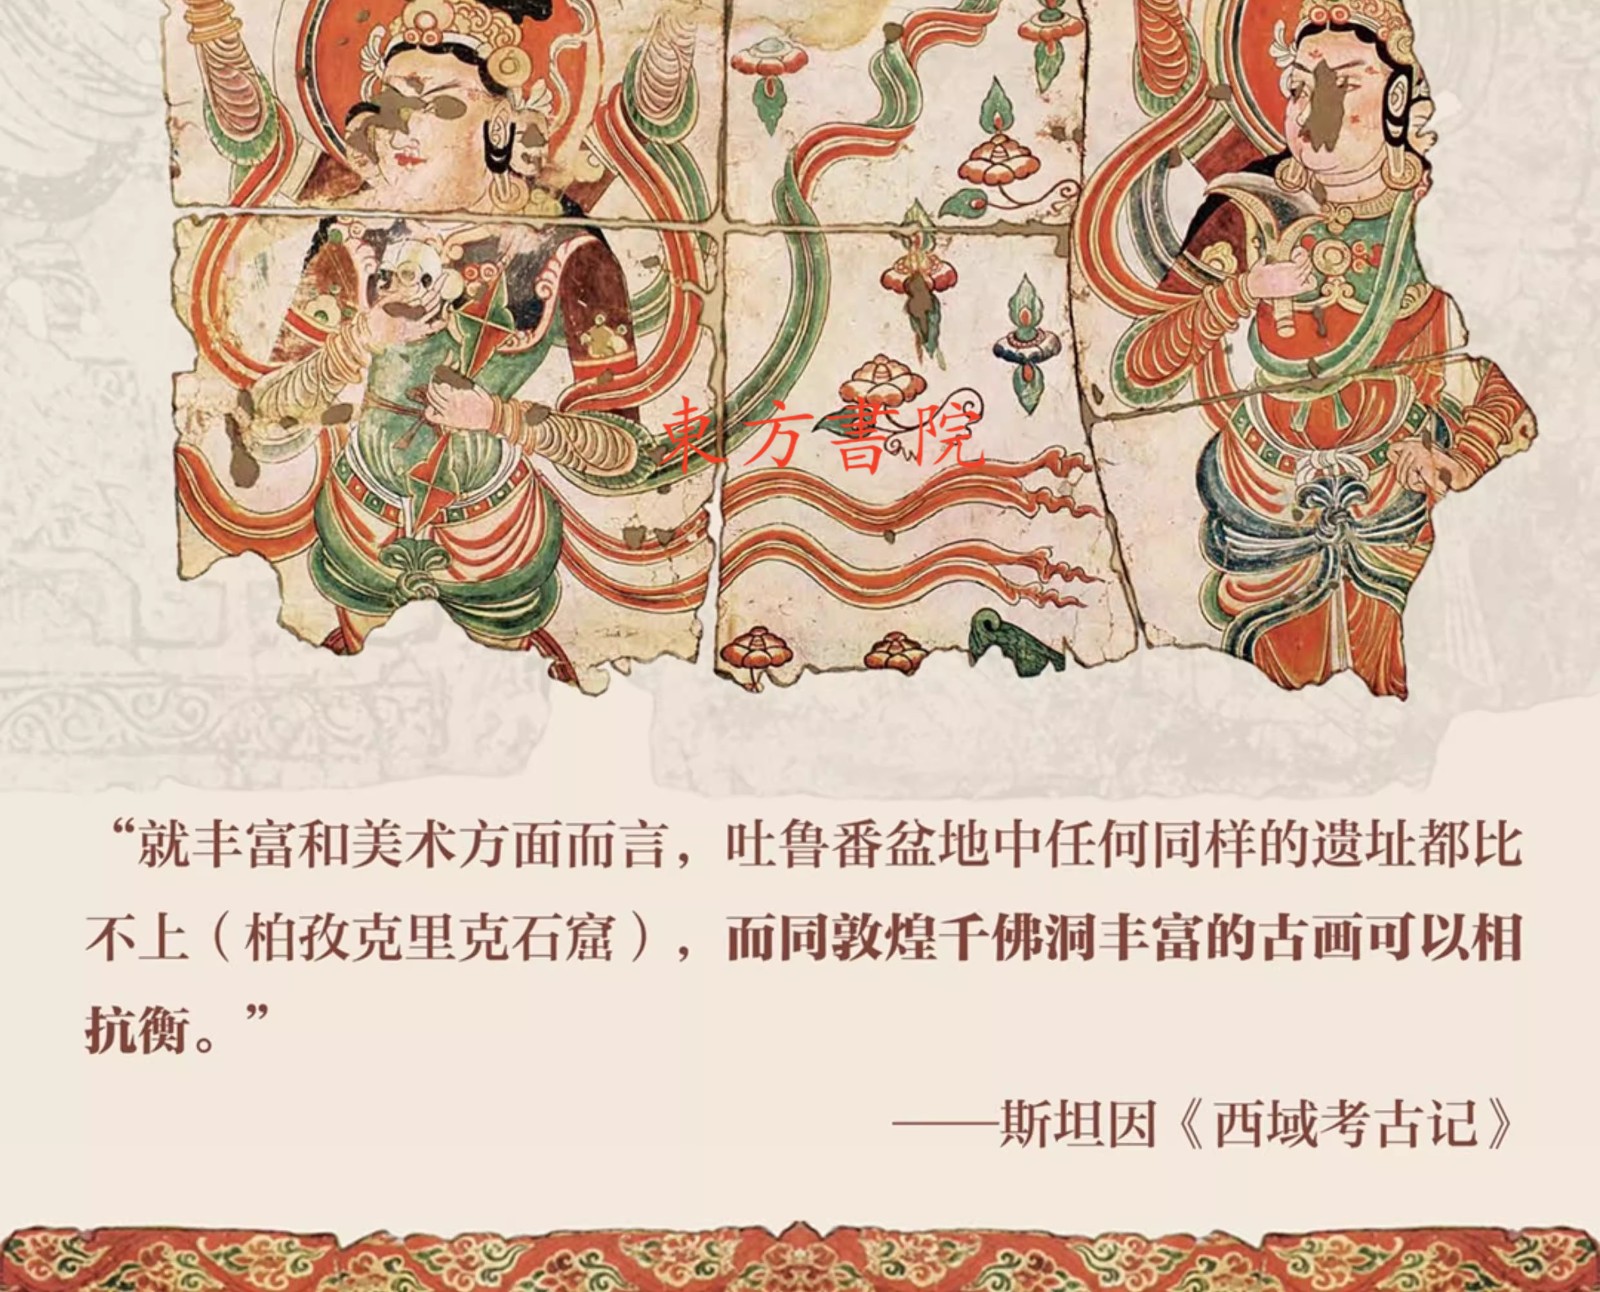 東方書院
“就丰富和美术方面而言，吐鲁番盆地中任何同样的遗址都比
不上（柏孜克里克石窟），而同敦煌千佛洞丰富的古画可以相
抗衡。”
——斯坦因《西域考古记》